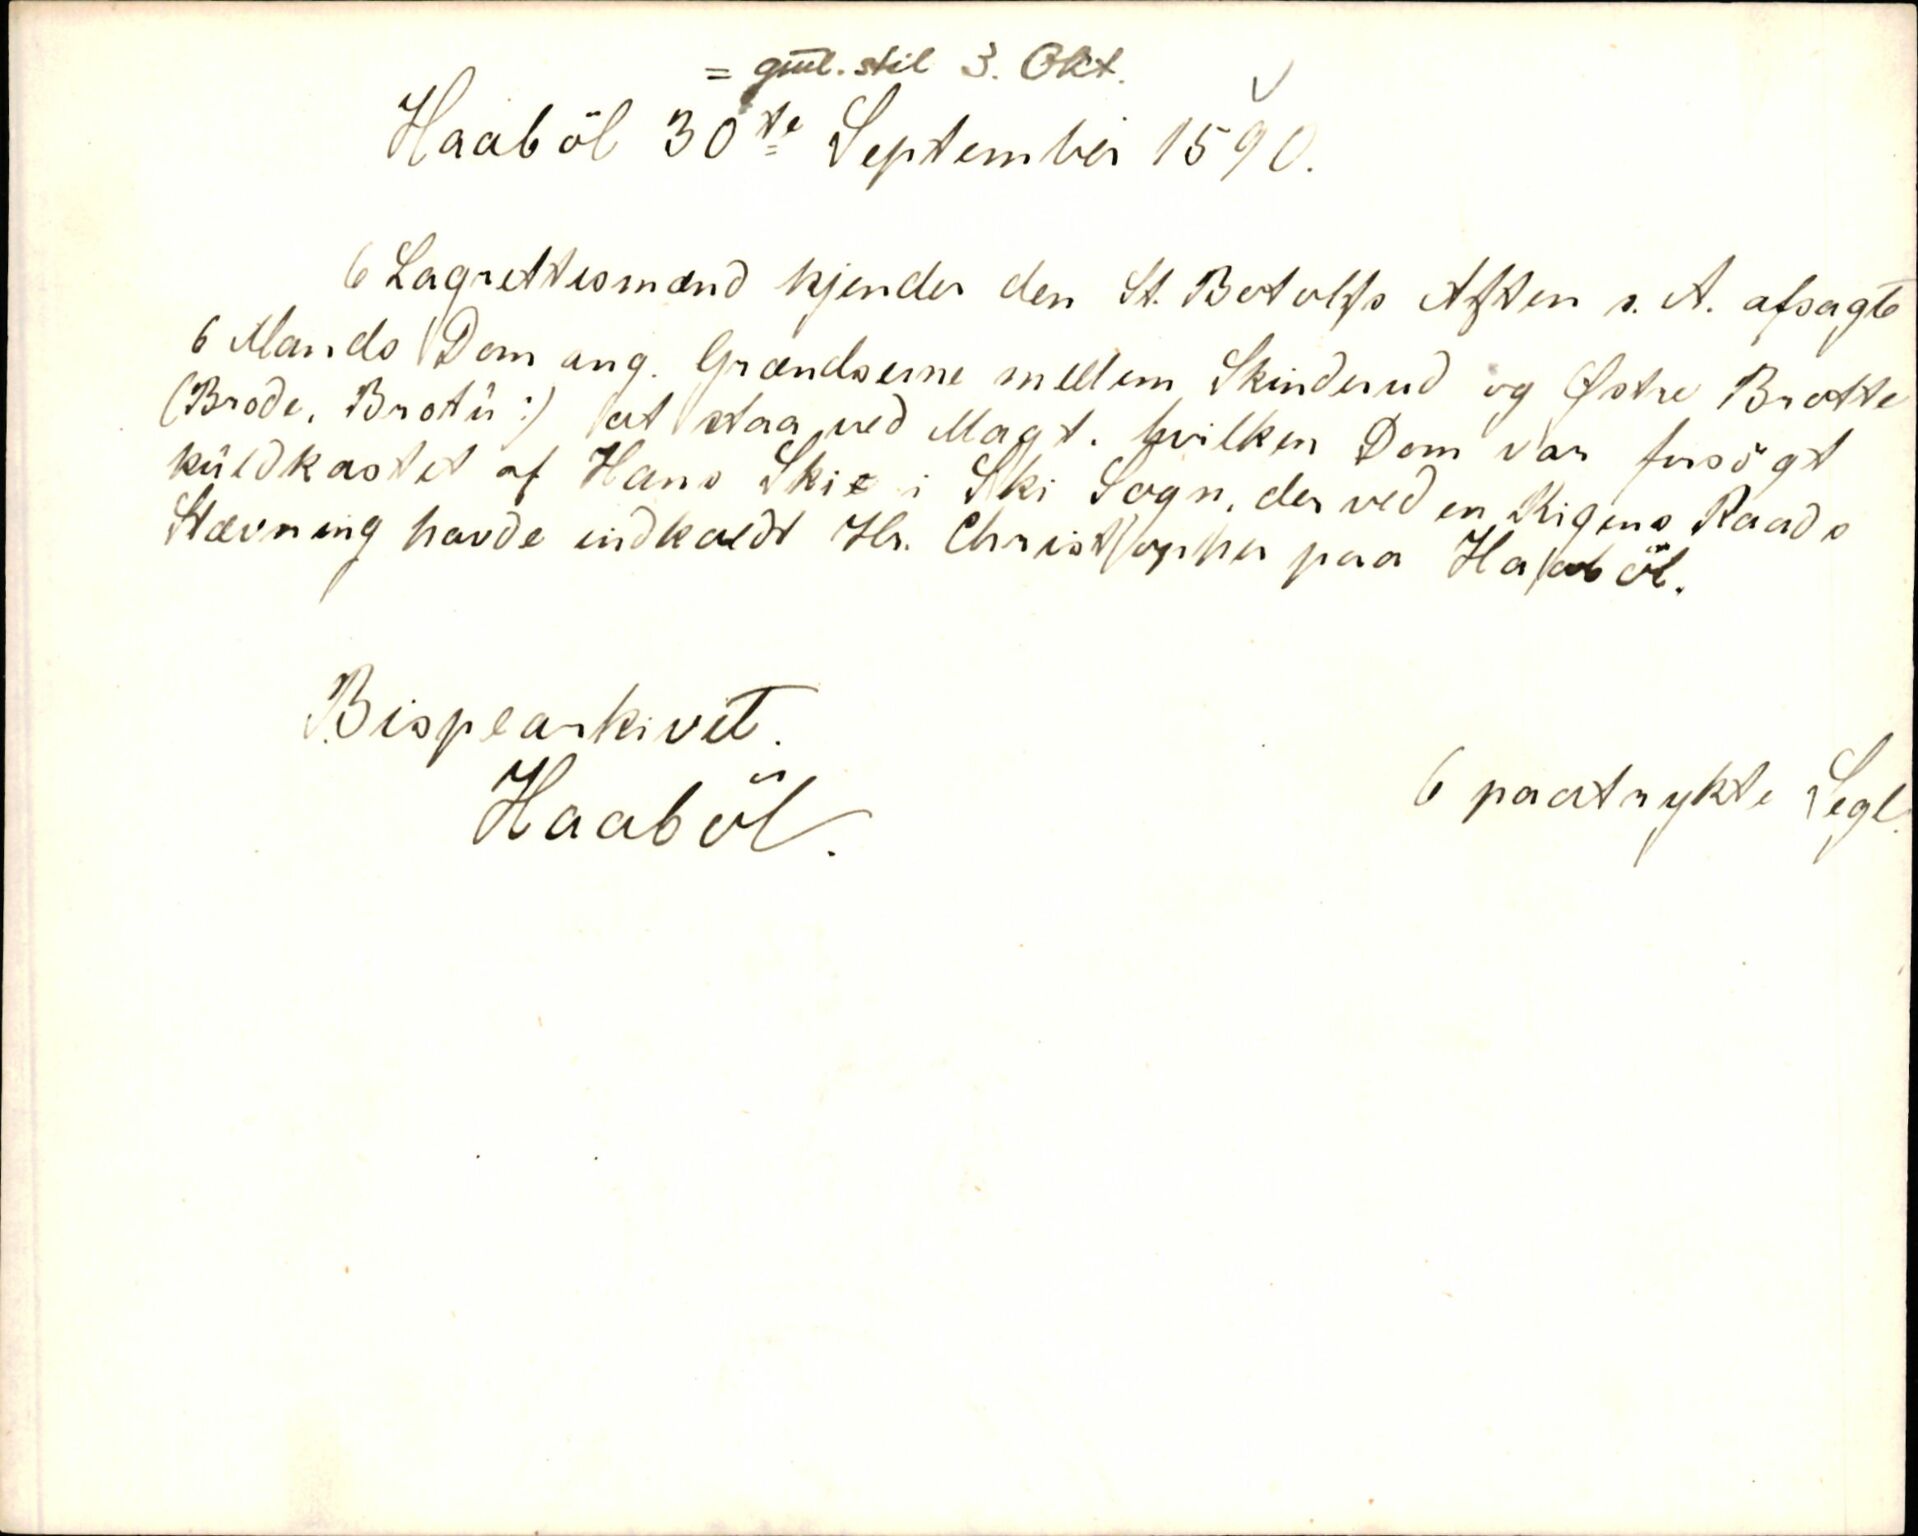 = gml. stil 3. Okt.
Haaböl 30te September 1590.
6 Lagrettesmænd kjender den St. Botolfs Aften s. A. afsagte
6 Mands Dom ang. Grændserne mellem Skinderud og Østre Brotte
(Brode, Brotû:) at staa ved Magt. hvilken Dom var forsögt
kûldkastet af Hans Skie i Ski Sogn, der ved en Rigens Raads
Stævning havde indkaldt Hr. Christopher paa Haaböl.
Bispearkivet.
Haaböl.
6 paatrykte Segl.